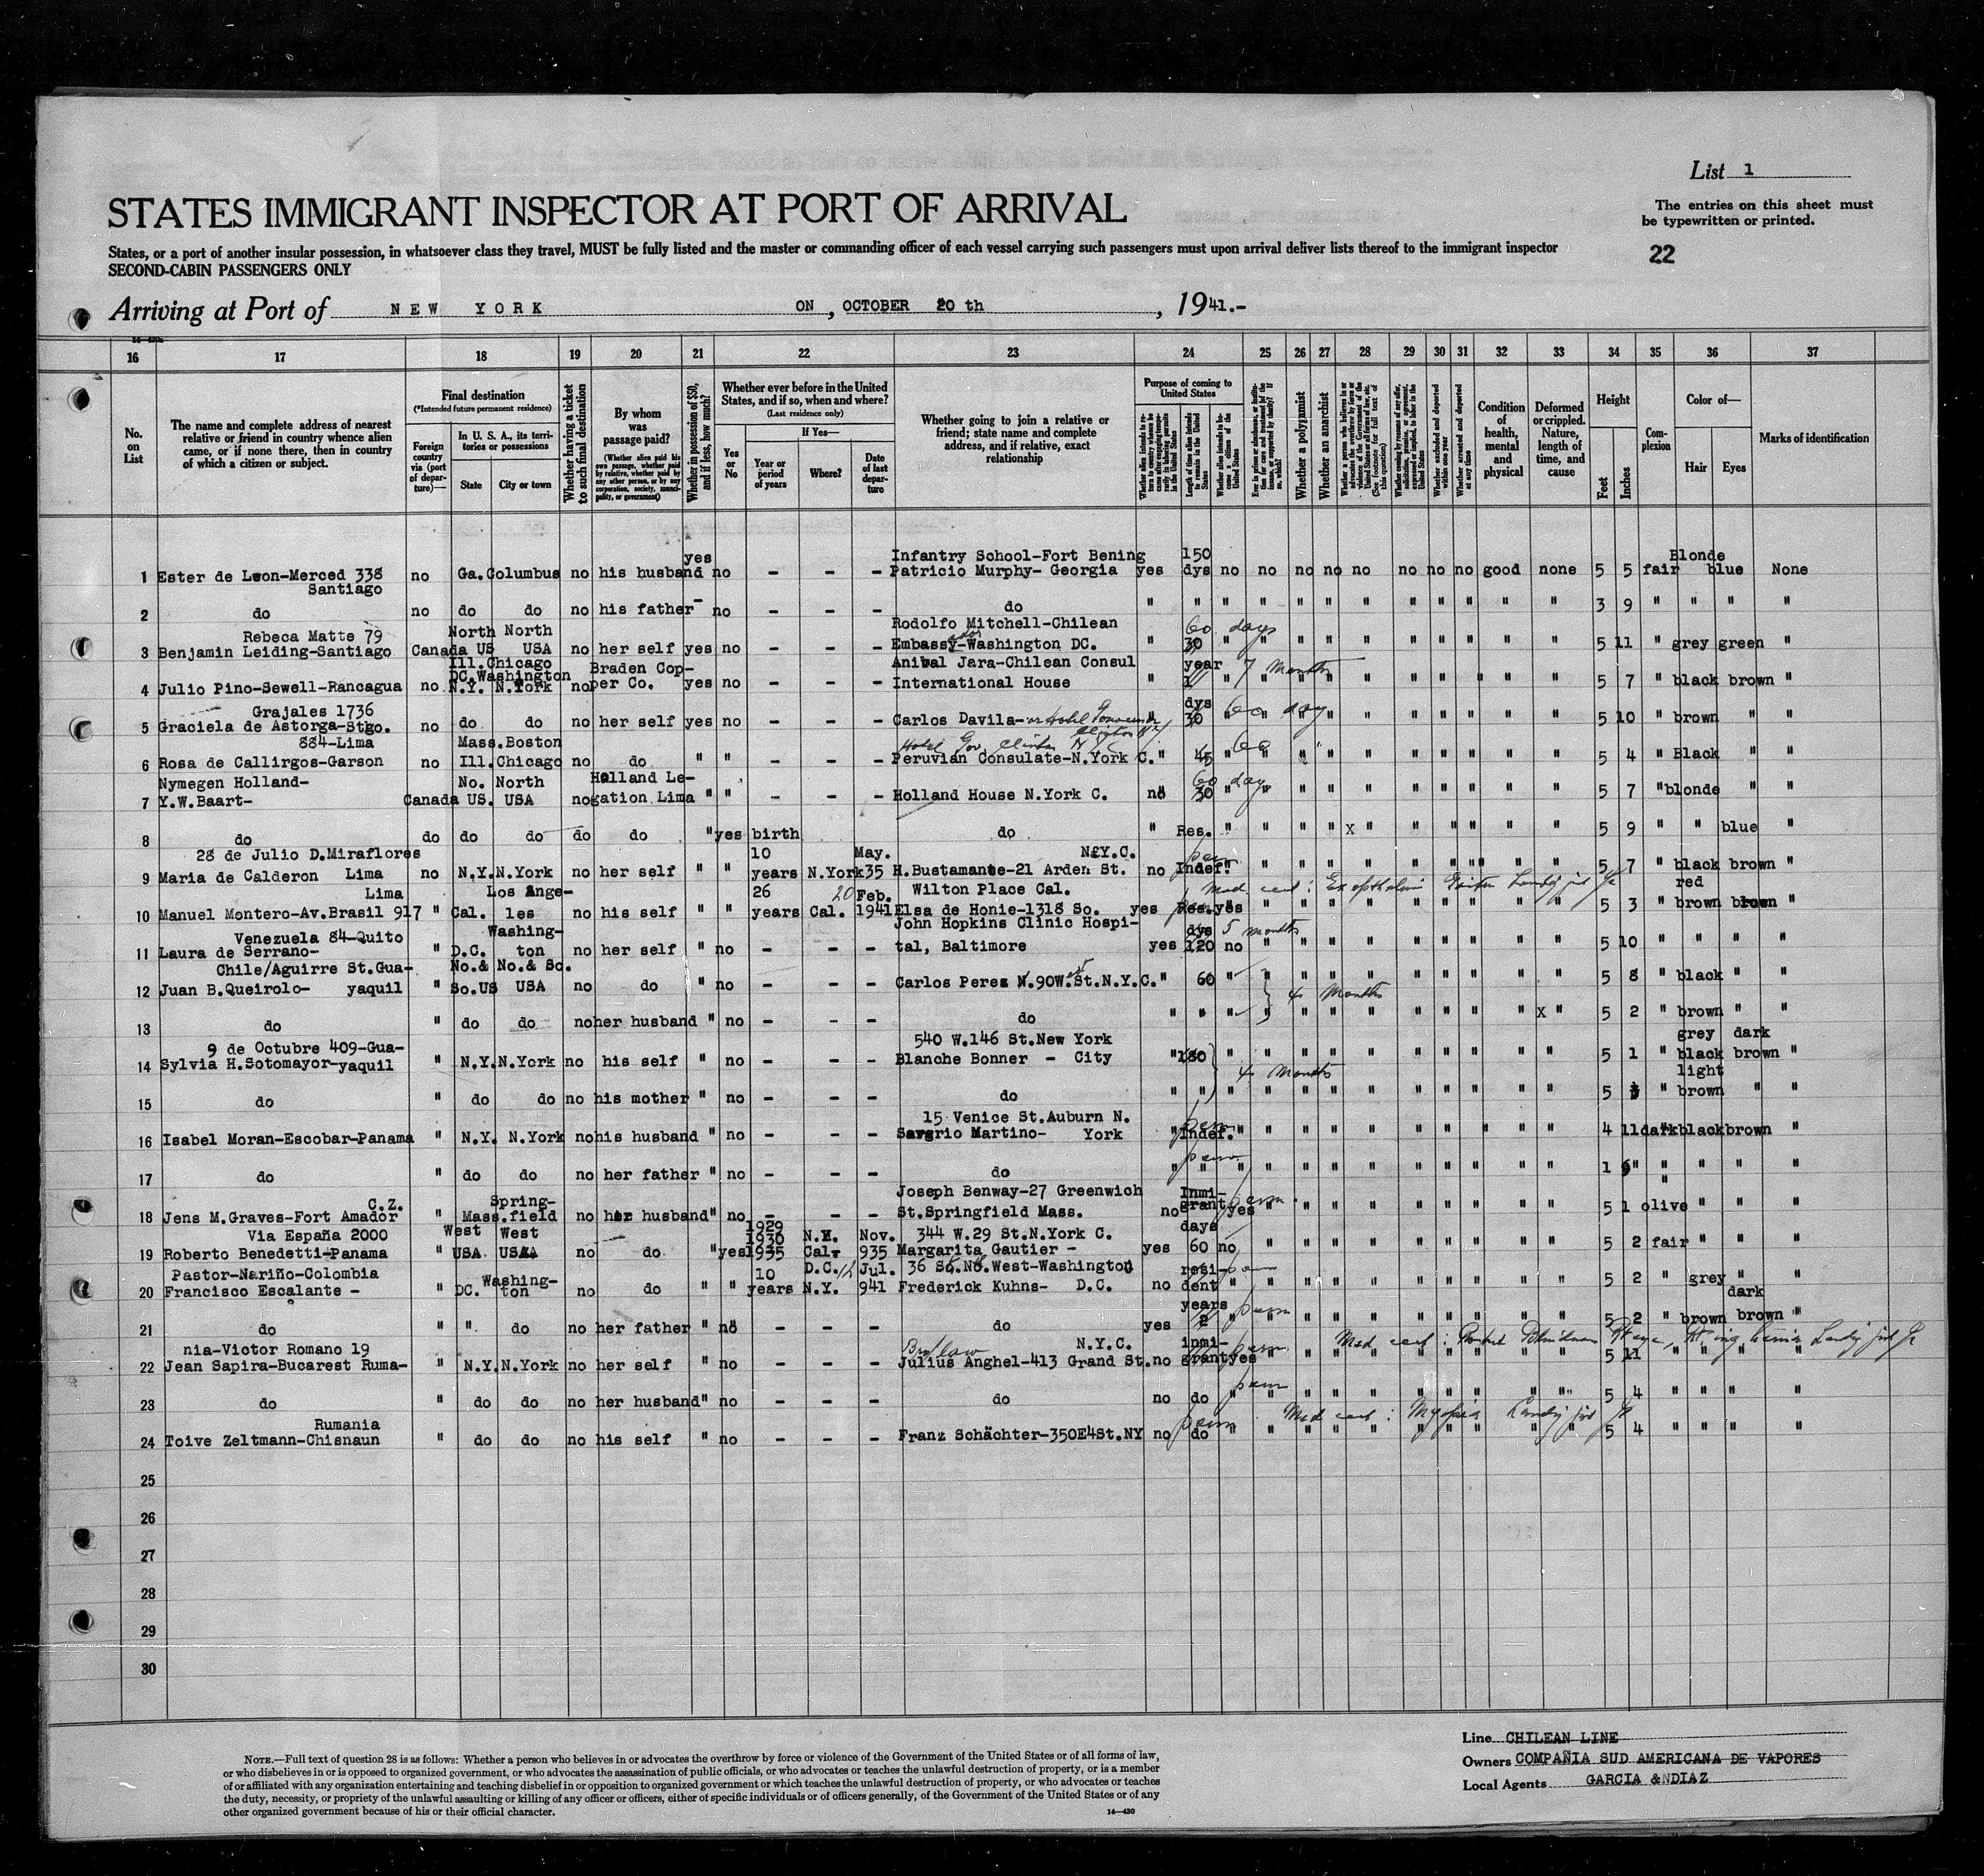 List 1
STATES IMMIGRANT INSPECTOR AT PORT OF ARRIVAL
The entries on this sheet must
be typewritten or printed.
States, or a port of another insular possession, in whatsoever class they travel, MUST be fully listed and the master or commanding officer of each vessel carrying such passengers must upon arrival deliver lists thereof to the immigrant inspector
SECOND-CABIN PASSENGERS ONLY
22
Arriving at Port of NEW YORK ON, OCTOBER 20 th, 1941.-
16 17 18 19 20 21 22 23 24 25 26 27 28 29 30 31 32 33 34 35 36 37
No. on List
The name and complete address of nearest relative or friend in country whence alien came, or if none there, then in country of which a citizen or subject.
Final destination
(*Intended future permanent residence)
Foreign country via (port of departure)—
In U. S. A., its territories or possessions
State
City or town
Whether having a ticket to such final destination
By whom was passage paid?
(Whether alien paid his own passage, whether paid by relative, whether paid by any other person, or by any corporation, society, municipality, or government)
Whether in possession of $50, and if less, how much?
Whether ever before in the United States, and if so, when and where?
(Last residence only)
Yes or No
If Yes—
Year or period of years
Where?
Date of last departure
Whether going to join a relative or friend; state name and complete address, and if relative, exact relationship
Purpose of coming to United States
Length of time alien intends to remain in the United States
Whether alien intends to become a citizen of the United States
Whether a polygamist
Whether an anarchist
Whether excluded and deported within one year
Whether arrested and deported at any time
Condition of health, mental and physical
Deformed or crippled. Nature, length of time, and cause
Height
Feet
Inches
Complexion
Color of—
Hair
Eyes
Marks of identification
yes Infantry School-Fort Bening 150 Blonde
1 Ester de Lwon-Merced 338 no Ga. Columbus no his husband no - - - Patricio Murphy- Georgia yes dys no no no no no no no no good none 5 5 fair blue None
Santiago
2 do no do do no his father - no - - - do " " " " " " " " " " " " 3 9 " " " "
Rebeca Matte 79 North North Rodolfo Mitchell-Chilean 60 days
3 Benjamin Leiding-Santiago Canada US USA no her self yes no - - - Embassy-Washington DC. " 30 5 11 " grey green "
Ill. Chicago
DC. Washington Braden Cop- Anibal Jara-Chilean Consul year 7 months
4 Julio Pino-Sewell-Rancagua no N.Y. N.York no per Co. yes no - - - International House " 1 5 7 " black brown "
Grajales 1736 dys 60 day
5 Graciela de Astorga-Stgo. no do do no her self yes no - - - Carlos Davila- or Hotel Governor Clinton 30 5 10 " brown " "
884-Lima Mass. Boston Hotel Gov. Clinton N.Y.C. 60
6 Rosa de Callirgos-Garson no Ill. Chicago no do " " - - - Peruvian Consulate-N.York C. " 45 5 4 " Black " "
Nymegen Holland- No. North Holland Le- 60 days
7 Y.W.Baart- Canada US. USA no gation Lima " " - - - Holland House N.York C. no 30 5 7 " blonde " "
8 do do do do do do " yes birth do " Res. " " " " x " " " " " " 5 9 " " blue "
28 de Julio D.Miraflores 10 May. N.Y.C. perm
9 Maria de Calderon Lima no N.Y. N.York no her self " " years N.York 35 H.Bustamante-21 Arden St. no Indef. 5 7 " black brown "
Lima Los Ange- 26 20 Feb. Wilton Place Cal. Med cert: red
10 Manuel Montero-Av.Brasil 917 " Cal. les no his self " " years Cal. 1941 Elsa de Honie-1318 So. yes Res. yes 5 3 " brown brown "
Venezuela 84-Quito Washing- John Hopkins Clinic Hospi- dys 5 months
11 Laura de Serrano- " D.C. ton no her self " no - - - tal, Baltimore yes 120 no 5 10 " " " "
Chile/Aguirre St.Gua- No.& No.& So.
12 Juan B.Queirolo- yaquil " So.US USA no do " no - - - Carlos Perez N.90W.St.N.Y.C. " 60 4 months 5 8 " black " "
13 do " do do no her husband " no - - - do " " " x " 5 2 " brown " "
9 de Octubre 409-Gua- 540 W.146 St.New York grey dark
14 Sylvia H.Sotomayor-yaquil " N.Y. N.York no his self " no - - - Blanche Bonner - City " 180 4 months 5 1 " black brown "
light
15 do " do do no his mother " no - - - do " " 5 " brown " "
15 Venice St.Auburn N. perm
16 Isabel Moran-Escobar-Panama " N.Y. N.York no his husband " no - - - Sergrio Martino- York " Indef. " 4 11 dark black brown "
perm
17 do " do do no her father " no - - - do " " " 1 6 " " " " "
C.Z. Spring- Joseph Benway-27 Greenwich Inmi- perm
18 Jens M.Graves-Fort Amador " Mass. field no her husband " no - - - St.Springfield Mass. no grant yes 5 1 olive " " "
Via España 2000 West West 1929 1930 N.H. Nov. 344 W.29 St.N.York C. days
19 Roberto Benedetti-Panama USA USA no do " yes 1935 Cal. 935 Margarita Gautier - yes 60 no 5 2 fair " " "
Pastor-Nariño-Colombia Washing- 10 D.C. Jul. 36 St.N8.West-Washington resi- perm
20 Francisco Escalante - " DC. ton no do " " years N.Y. 941 Frederick Kuhns- D.C. no dent 5 2 " grey " "
years perm dark
21 do " " do no her father " no - - - do yes 2 5 2 " brown brown "
nia-Victor Romano 19 Bro/law N.Y.C. inmi- perm Med cert:
22 Jean Sapira-Bucarest Ruma- " N.Y. N.York no her self " no - - - Julius Anghel-413 Grand St. no grant yes 5 11 " " " "
perm
23 do " do do no her husband " no - - - do no do " 5 4 " " " "
Rumania perm Med cert: Myopia
24 Toive Zeltmann-Chisnaun " do do no his self " no - - - Franz Schächter-350E4St.NY no do " 5 4 " " " "
25
26
27
28
29
30
Line CHILEAN LINE
Owners COMPAÑIA SUD AMERICANA DE VAPORES
Local Agents GARCIA & DIAZ
NOTE.—Full text of question 28 is as follows: Whether a person who believes in or advocates the overthrow by force or violence of the Government of the United States or of all forms of law,
or who disbelieves in or is opposed to organized government, or who advocates the assassination of public officials, or who advocates or teaches the unlawful destruction of property, or is a member
of or affiliated with any organization entertaining and teaching disbelief in or opposition to organized government or which teaches the unlawful destruction of property, or who advocates or teaches
the duty, necessity, or propriety of the unlawful assaulting or killing of any officer or officers, either of specific individuals or of officers generally, of the Government of the United States or of any
other organized government because of his or their official character.
14—430